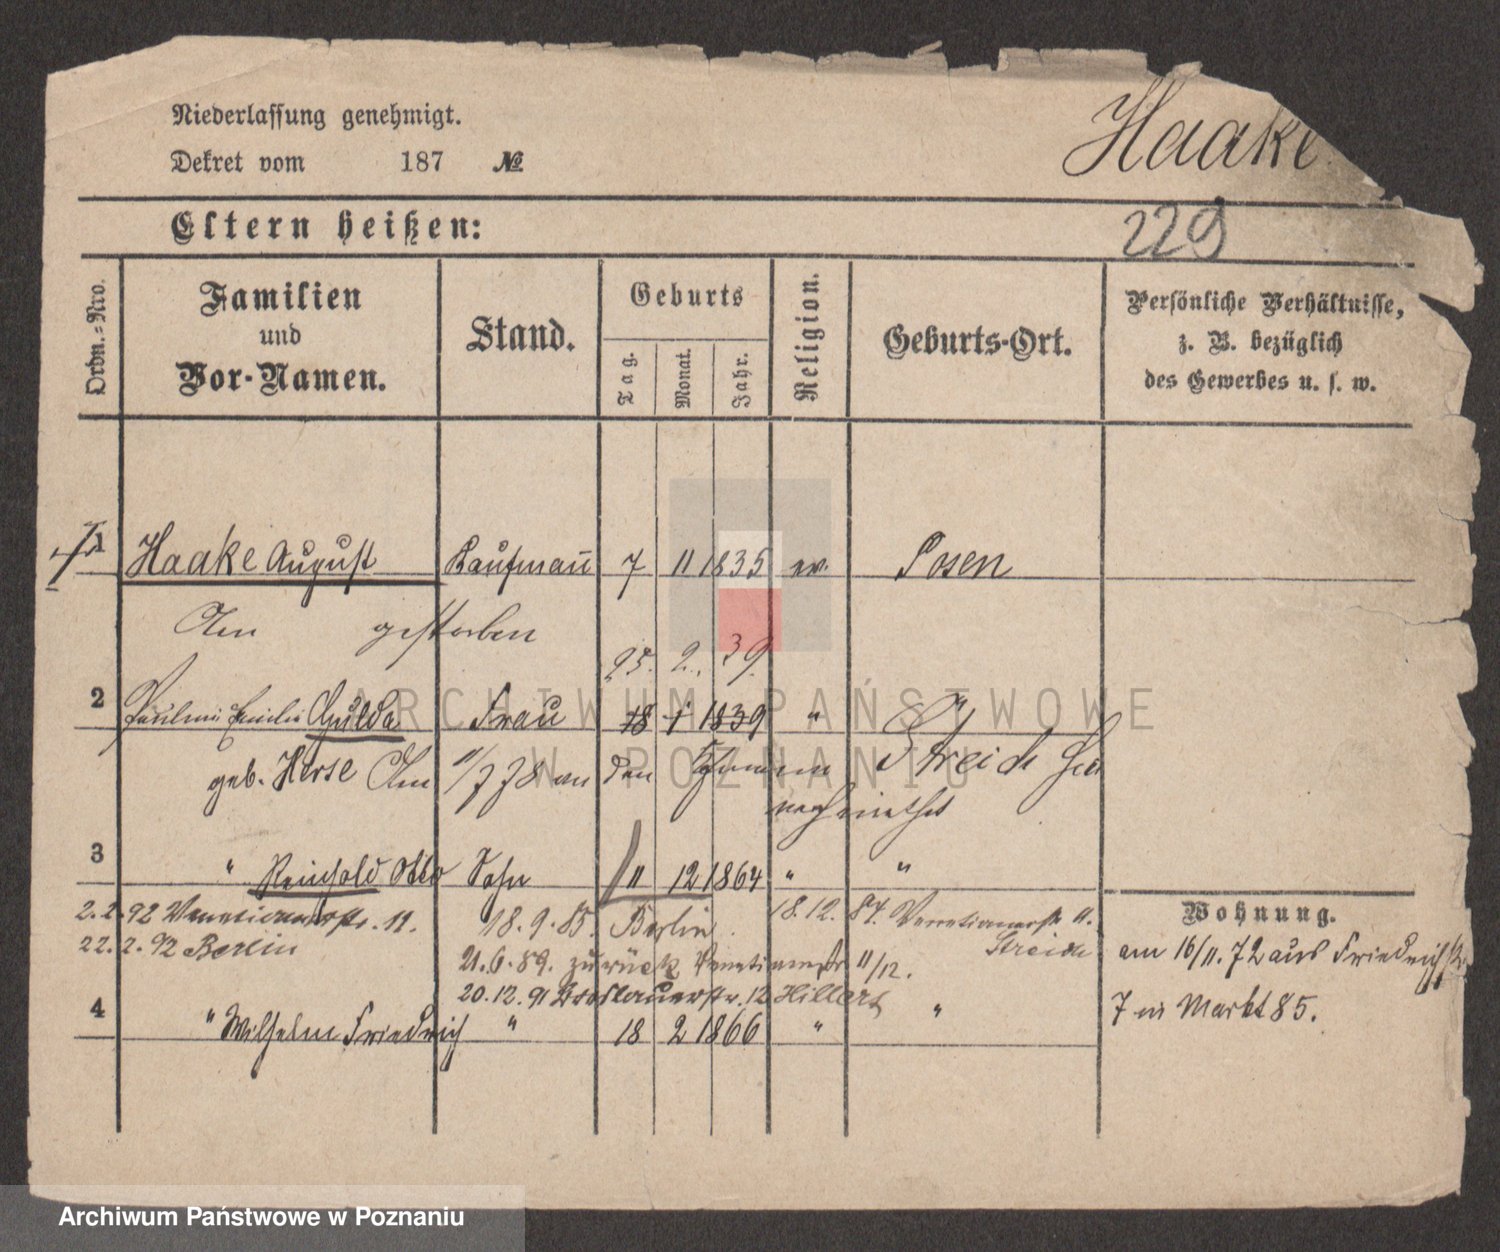 Niederlassung genehmigt.
Haake
Dekret vom 187 №
Eltern heißen:
229
Ordn.=Nro.
Familien
und
Vor-Namen.
Stand.
Geburts
Tag.
Monat.
Jahr.
Religion.
Geburts-Ort.
Persönliche Verhältnisse,
z. B. bezüglich
des Gewerbes u. s. w.
1 Haake August Kaufmann 7 11 1835 ev. Posen
Am gestorben
25. 2. 39.
2 Pauline Emilie Hulda Frau 18 1 1839 " "
geb. Herse Am 11/7 78 an den Streich
verheirathet
3 " Reinhold Otto Sohn 11 12 1864 " "
Wohnung.
2.2.92 Venetianerstr. 11. 18.9.85. Berlin. 18.12.87. Venetianerstr. 11.
Streich
22.2.92 Berlin
21.6.89. zurück Venetianerstr 11/12.
am 16/11. 72 aus Friedrichstr.
20.12.91 Breslauerstr. 12 Hillert
7 n Markt 85.
4 " Wilhelm Friedrich " 18 2 1866 " "
ARCHIWUM PAŃSTWOWE
W POZNANIU
Archiwum Państwowe w Poznaniu